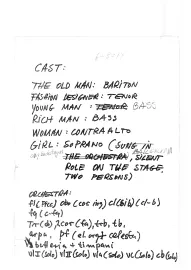 CAST:
THE OLD MAN: BARITON
FASHION DESIGNER: TENOR
YOUNG MAN: TENOR BASS
RICH MAN: BASS
WOMAN: CONTRAALTO
GIRL: SOPRANO (SUNG IN
THE ORCHESTRA, SILENT
ROLE ON THE STAGE,
TWO PERSONS)
ORCHESTRA:
fl (picc) obo (cor ing) cl (bib) (cl-b)
fg (c-fg)
Tr (b) 2cor (fa), trb, tb,
arpa, pf (el. org + celesta)
batteria + timpani
vlI (solo) vlII (solo) vla (solo) vc (solo) cb (solo)